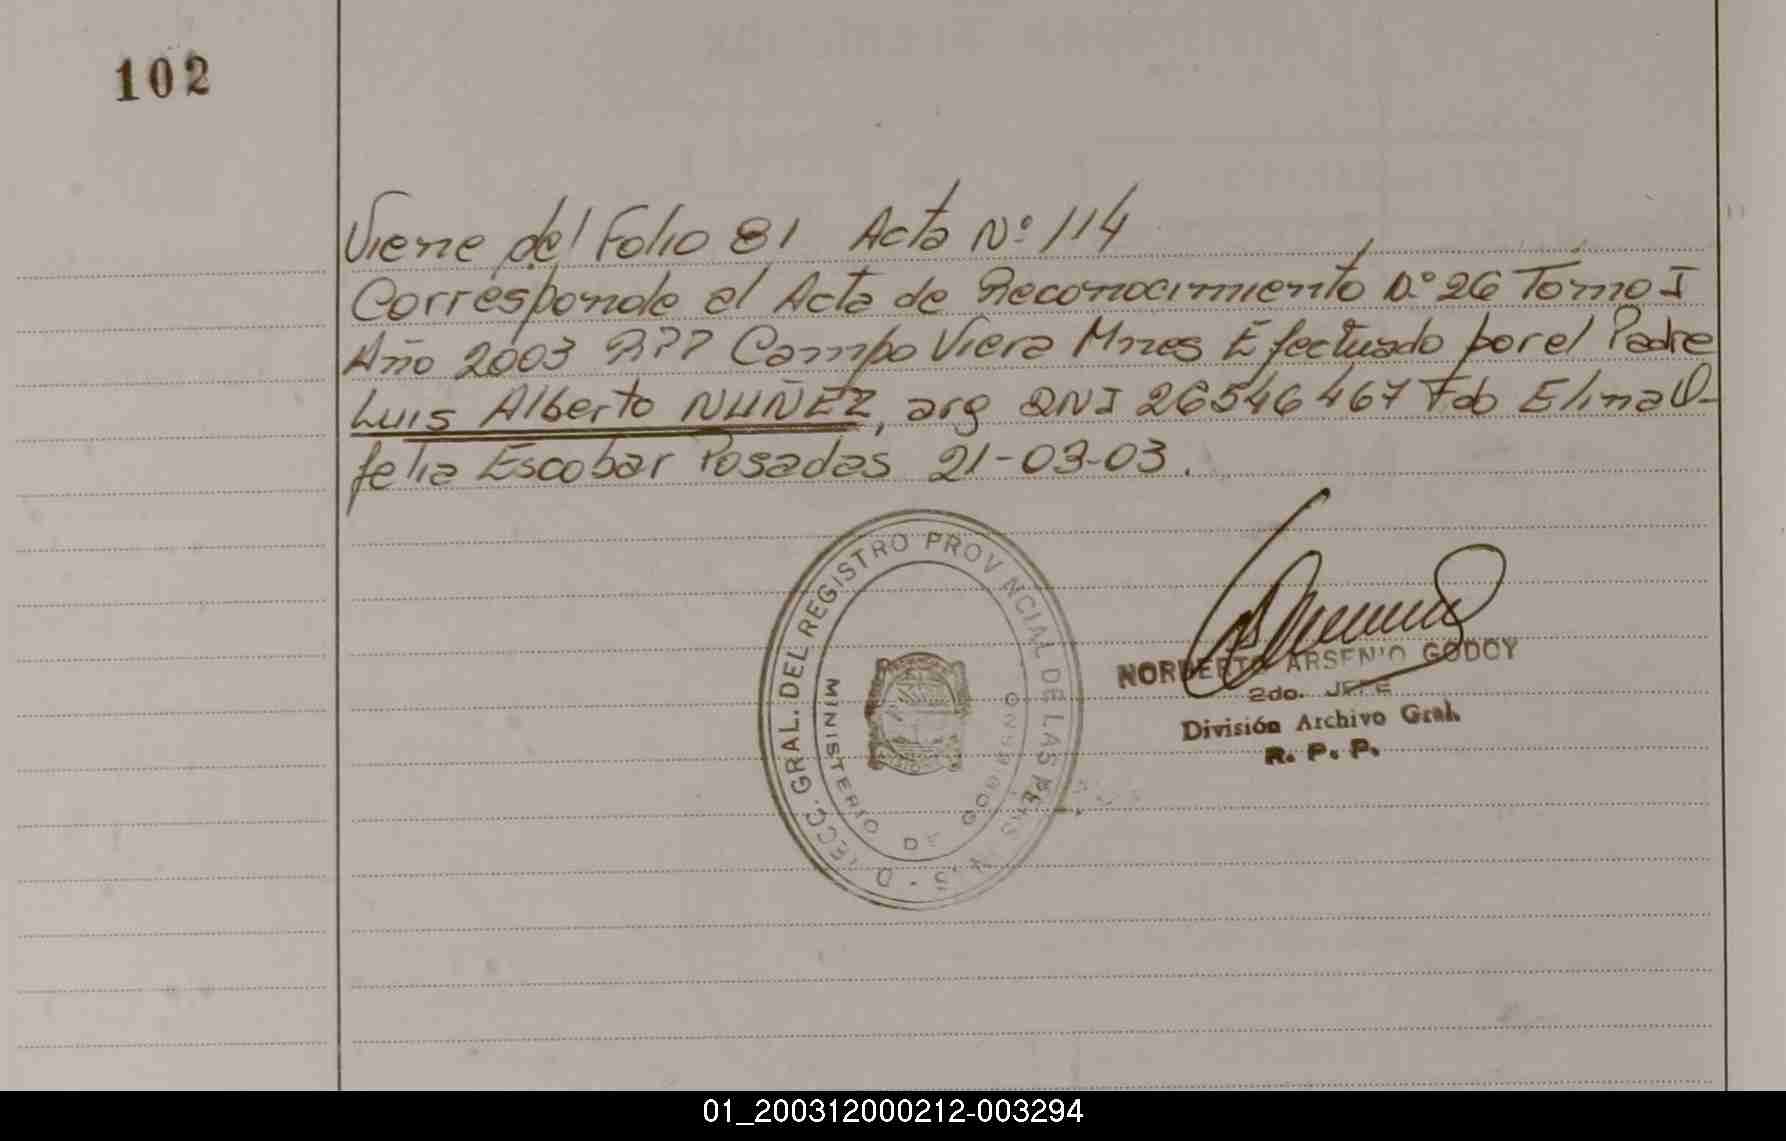 102
Viene del Folio 81 Acta Nº 114
Corresponde al Acta de Reconocimiento Nº 26 Tomo I
Año 2003 RPP Campo Viera Mnes Efectuado por el Padre
Luis Alberto NUÑEZ, arg DNI 26546467 Fdo Elina O-
felia Escobar Posadas 21-03-03.
DIRECC. GRAL. DEL REGISTRO PROVINCIAL DE LAS PERSONAS
MINISTERIO DE GOBIERNO
NORBERTO ARSENIO GODOY
2do. JEFE
División Archivo Gral.
R. P. P.
01_200312000212-003294